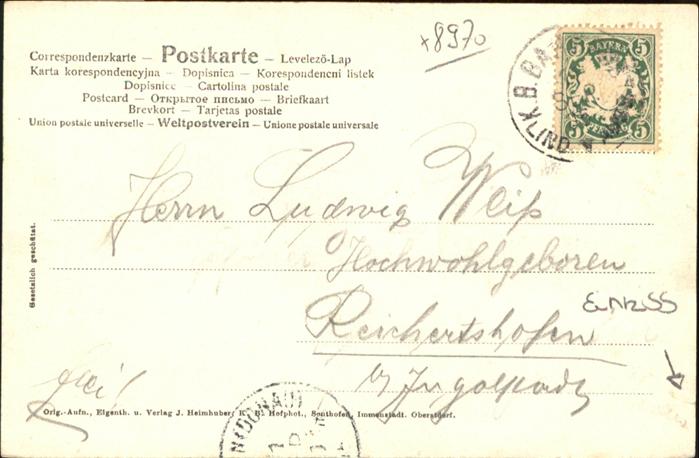 x8970
Correspondenzkarte – Postkarte – Levelező-Lap
Karta korespondencyjna – Dopisnica – Korespondencni listek
Dopisnice – Cartolina postale
Postcard – Открытое письмо – Briefkaart
Brevkort – Tarjetas postale
Union postale universelle – Weltpostverein – Unione postale universale
BAYERN
5 5
5 5
PFENNIG
K.B.BA
LIND
Herrn Ludwig Weiß
Hochwohlgeboren
Reichertshofen
b/Ingolstadt
Gesetzlich geschützt.
Orig.-Aufn., Eigenth. u. Verlag J. Heimhuber, K. B. Hofphot., Sonthofen, Immenstadt, Oberstdorf.